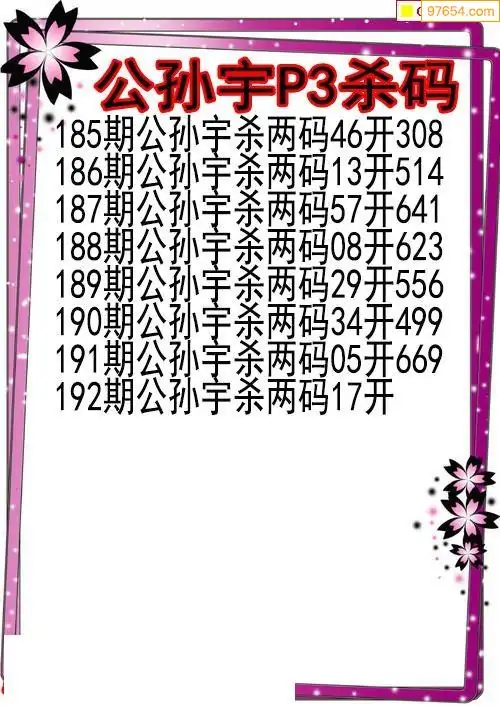 97654.com
公孙宇P3杀码
185期公孙宇杀两码46开308
186期公孙宇杀两码13开514
187期公孙宇杀两码57开641
188期公孙宇杀两码08开623
189期公孙宇杀两码29开556
190期公孙宇杀两码34开499
191期公孙宇杀两码05开669
192期公孙宇杀两码17开